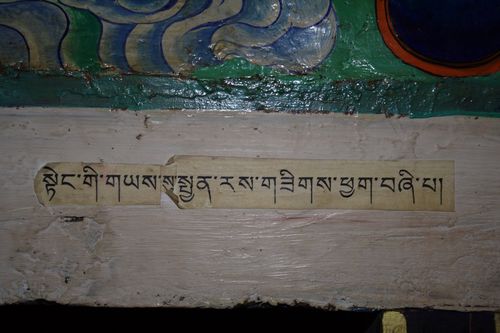 སྟེང་གི་གཡས་ས་སྤྱན་རས་གཟིགས་ཕྱག་བཞི་པ།